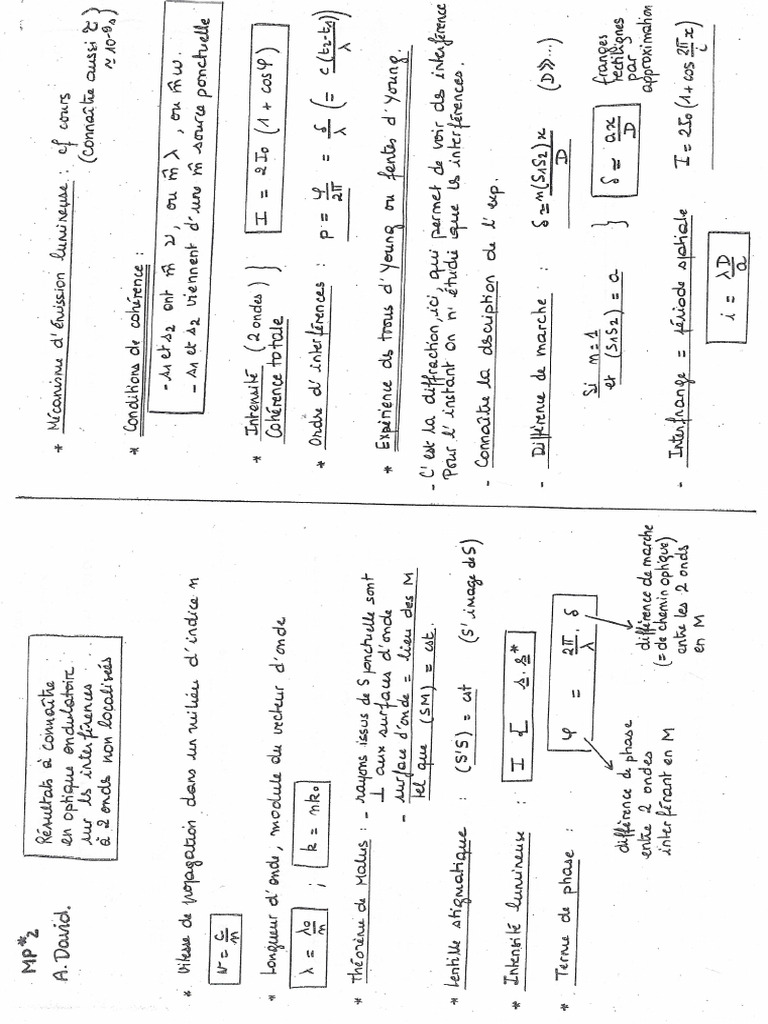 MP*2
A. David.
Résultats à connaître
en optique ondulatoire
sur les interférences
à 2 ondes non localisées
* Vitesse de propagation dans un milieu d'indice n
v = c/n
* Longueur d'onde, module du vecteur d'onde
λ = λ0/n ; k = nk0
* Théorème de Malus : - rayons issus de S ponctuelle sont
⊥ aux surfaces d'onde
- surface d'onde = lieu des M
tel que (SM) = cst.
* Lentille stigmatique : (S'S) = cst (S' image de S)
* Intensité lumineuse : I [ s.s*
* Terme de phase : φ = 2π/λ . δ
différence de phase
entre 2 ondes
interférant en M
différence de marche
(= de chemin optique)
entre les 2 ondes
en M
* Mécanisme d'émission lumineuse : cf cours
(connaître aussi τ
≈ 10^-9 s)
* Conditions de cohérence :
- s1 et s2 ont m̂ ν, ou m̂ λ, ou m̂ w.
- s1 et s2 viennent d'une m̂ source ponctuelle
* Intensité (2 ondes) } I = 2I0 (1 + cosφ)
Cohérence totale
* Ordre d'interférences : p = φ/2π = δ/λ (= c(t2-t1)/λ)
* Expérience des trous d'Young ou fentes d'Young.
- C'est la diffraction, ici, qui permet de voir des interférences
Pour l'instant on n'étudie que les interférences.
- Connaître la description de l'exp.
- Différence de marche : δ = n(S1S2)x/D (D≫...)
Si n=1
et (S1S2) = a } δ = ax/D
franges
rectilignes
par
approximation
- Interfrange = période spatiale I = 2I0 (1 + cos 2π/i x)
i = λD/a